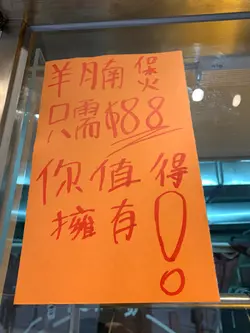 羊腩煲
只需$88
你值得
擁有!